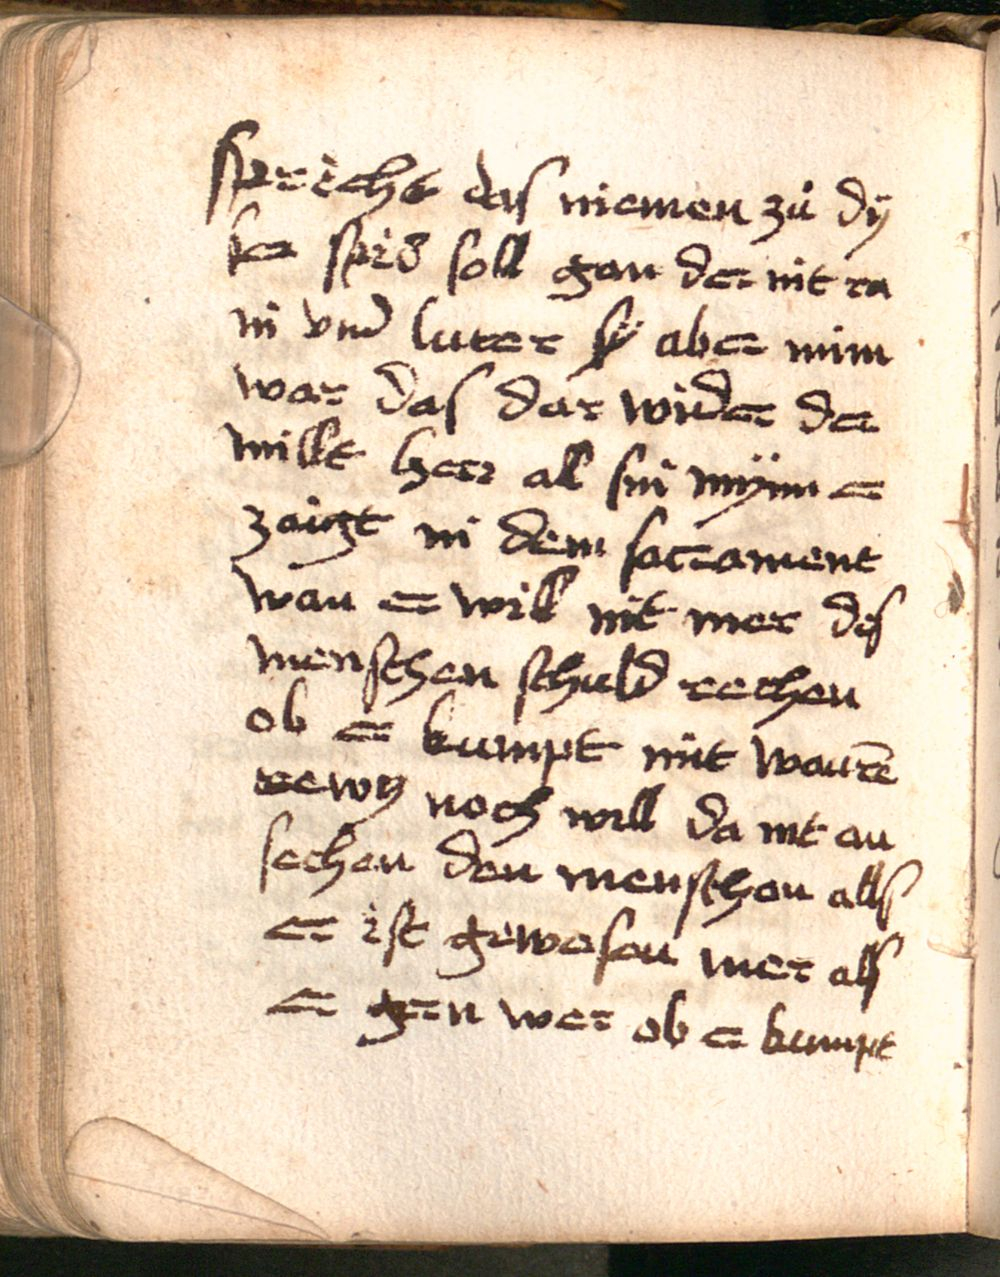 spricht das niemen zů dÿ
ser spis soll gan der nit ra
in vnd luter sÿ aber nim
war das dar wider der
millt herr all sin mÿnn er
zaigt in dem sacrament
wan er will nit mer des
menschen schuld rechen
ob er kumpt mit waurē
rewÿ noch will da nit an
sechen den menschen alls
er ist gewesen mer als
er gern wer ob er kumpt